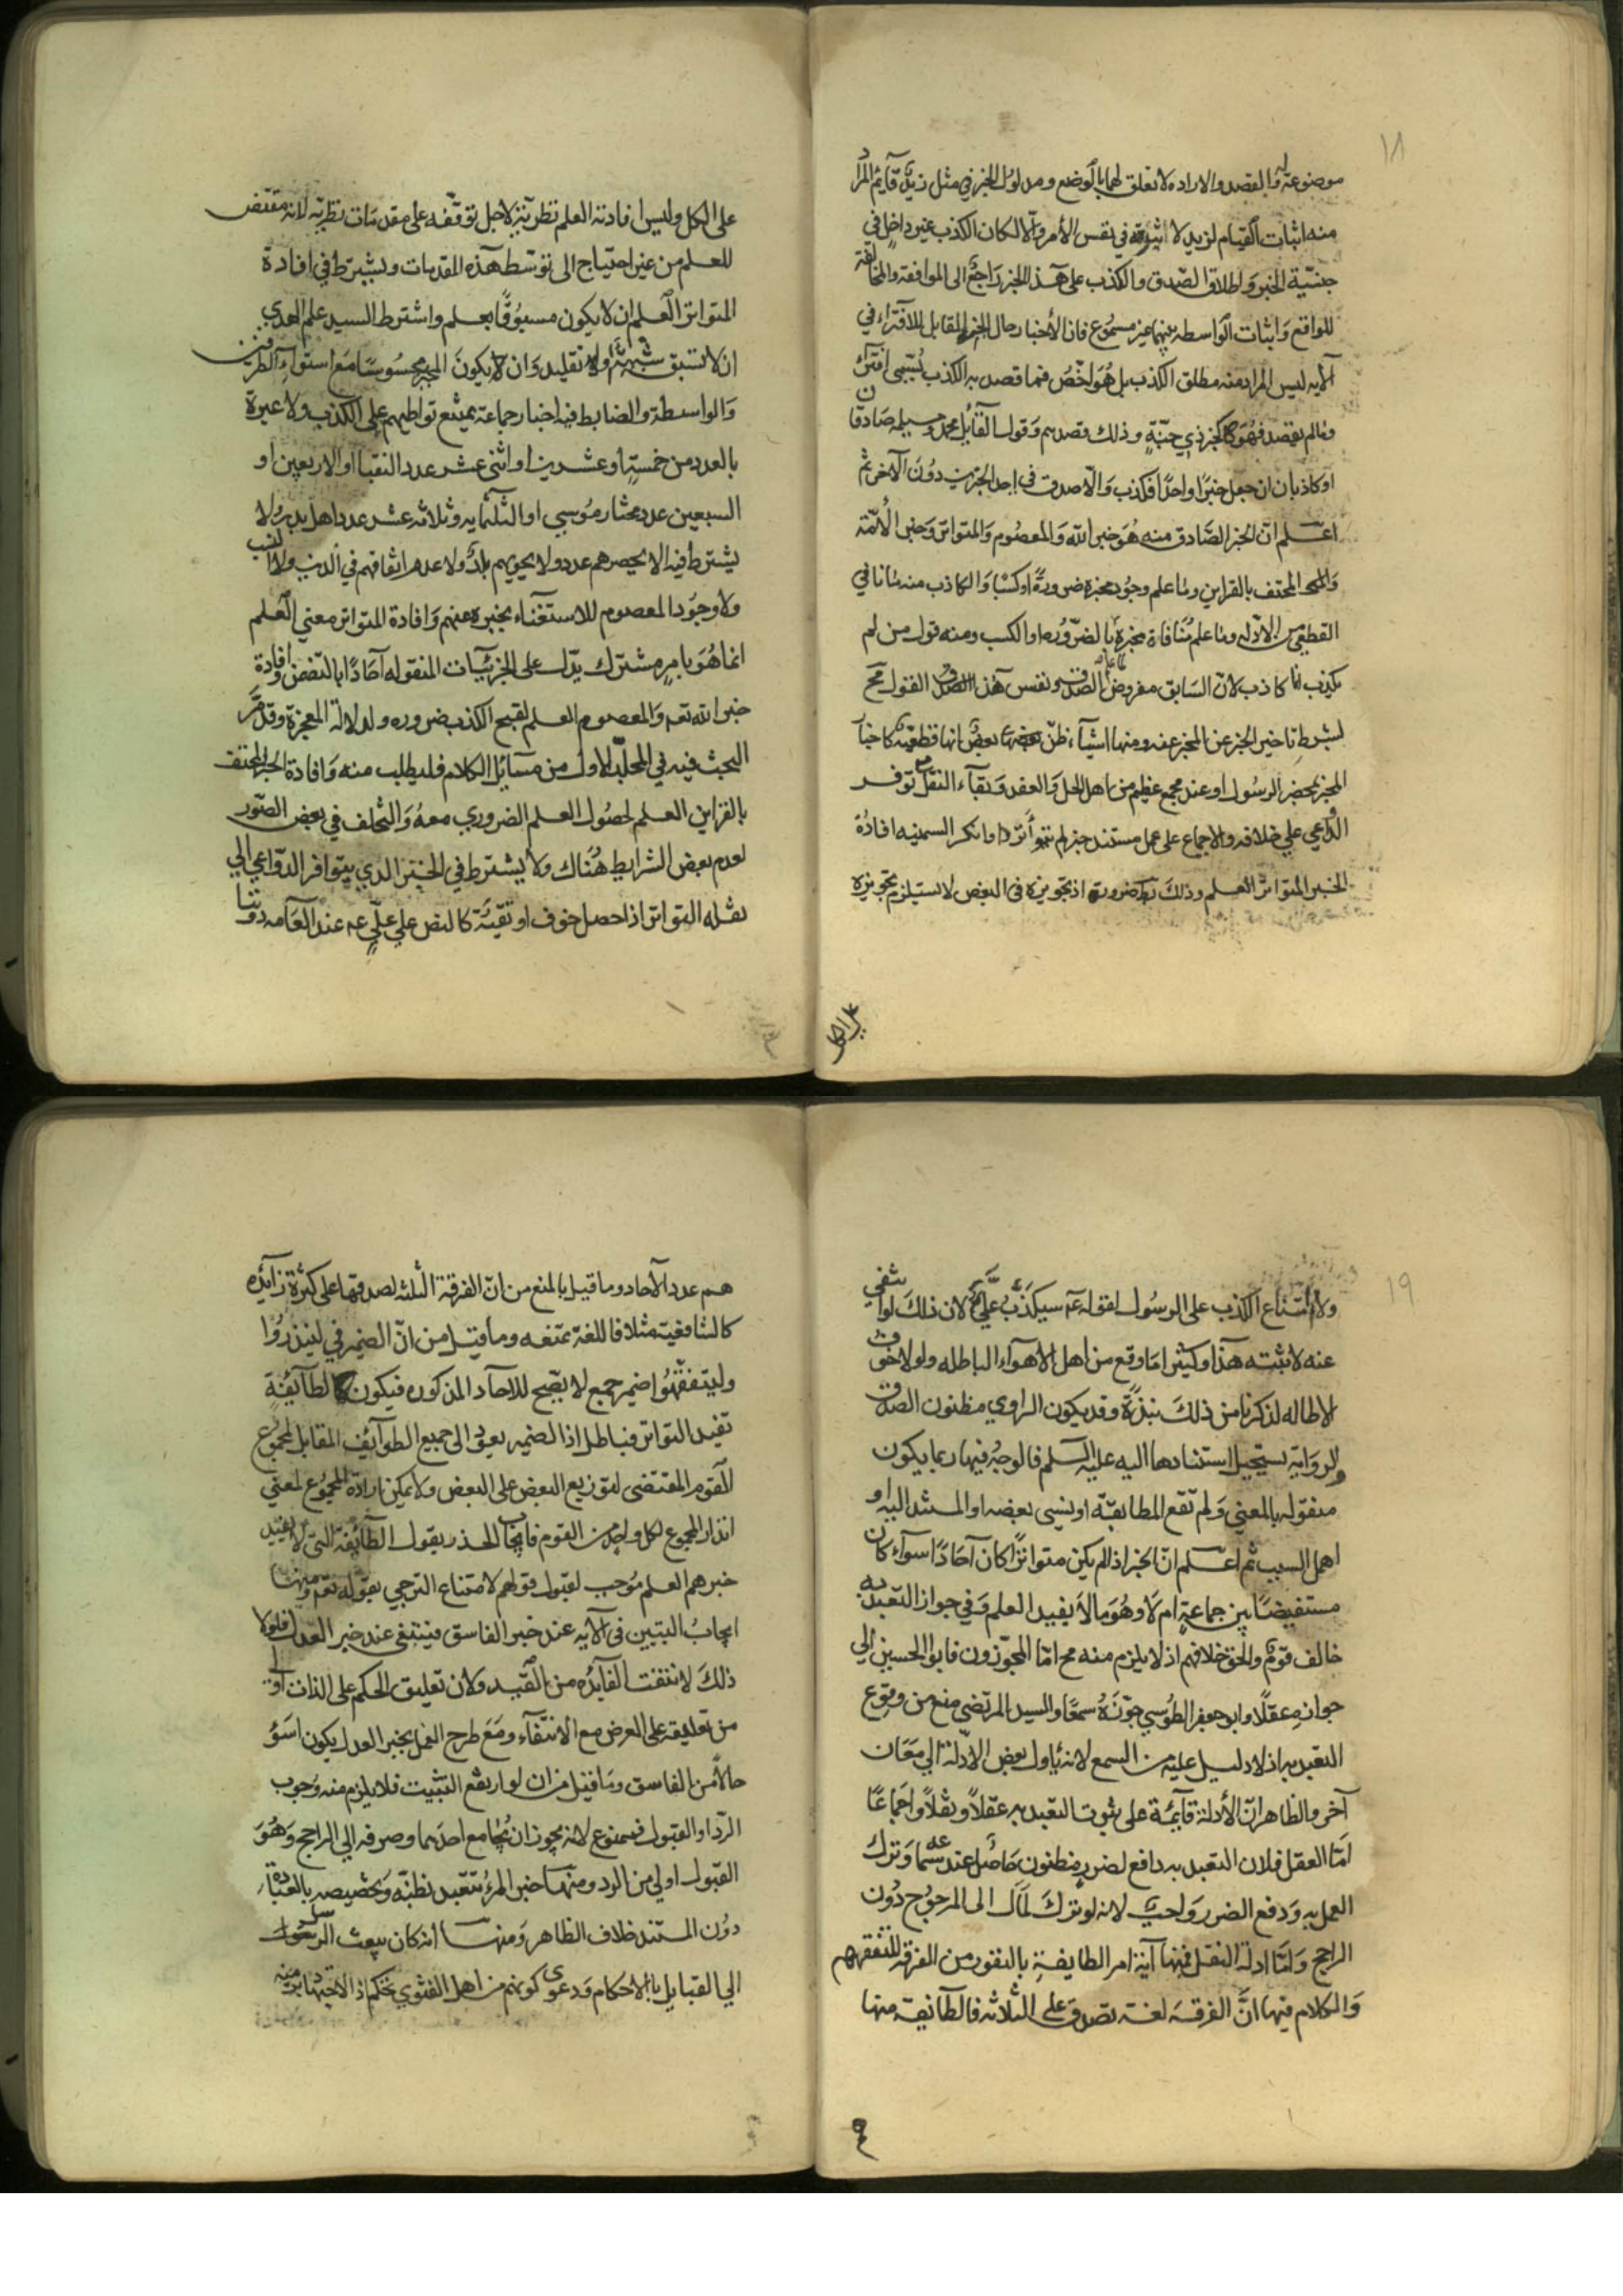 ١٨
موضوعة له والقصد والاراده لا تعلق لهما بالوضع ومدلول الخبر في مثل زيد قآيم المراد
منه اثبات القيام لزيد لا ثبوته في نفس الأمر والا لكان الكذب غير داخل في
جنسية الخبر واطلاق الصدق والكذب على هذا الخبر راجع الى الموافقة والمخالفة
للواقع واثبات الواسطه بينهما غير مسموع فان الأخبار حال الجنة المقابل للافتراء في
الآيه ليس المراد منه مطلق الكذب بل هو اخص فما قصد به الكذب يسمى افترآ
وما لم يقصد فهو كخبر ذي جنة وذلك قصدهم وقول القآيل محمد ومسيلمه صادقان
او كاذبان ان جعل خبرا واحدا فكذب والا صدق في احد الخبرين دون الآخر ثم
اعلم ان الخبر الصادق منه هو خبر الله والمعصوم والمتواتر وخبر الأئمة
والمحتف بالقراين وما علم وجود مخبره ضرورة او كسبا والكاذب منه ما نافي
القطعي من الادله وما علم منافاة مخبره بالضروره او الكسب ومنه قول من لم
يكذب انا كاذب لان السابق مفروض الصدق ونفس هذا القول مح
لشرط تاخير الخبر عن المخبر عنه ومنها اشيآء ظن بعض انها قطعية كاخبار
المخبر بمحضر الرسول او عند مجمع عظيم من اهل الحل والعقد وبقآء النقل مع توفر
الدواعي على خلافه والاجماع على عمل مستند خبر لم يتواتر وانكر السمنيه افادة
الخبر المتواتر العلم وذلك ضروره اذ تجويزه في البعض لا يستلزم تجويزه
على الكل
على الكل وليس افادته العلم نظرية لاجل توقفه على مقدمات نظريه لانه مقتض
للعلم من غير احتياج الى توسط هذه المقدمات ويشترط في افادة
المتواتر العلم ان لا يكون مسبوقا بعلم واشترط السيد علم الهدي
ان لا تسبق شبهة ولا تقليد وان لا يكون المخبر محسوسا مع استوآء الطرفين
والواسطة والضابط فيه اخبار جماعة يمتنع تواطيهم على الكذب ولا عبرة
بالعدد من خمسة او عشرين او اثنى عشر عدد النقبا او الاربعين او
السبعين عدد مختار موسي او الثلثمايه وثلاثه عشر عدد اهل بدر ولا
يشترط فيه الا يحصرهم عدد ولا يحويهم بلد ولا عدم اتفاقهم في الدين ولا النسب
ولا وجود المعصوم للاستغناء بخبره عنهم وافادة المتواتر معني العلم
انما هو بامر مشترك يدل على الجزئيآت المنقوله آحادا بالتضمن وافادة
خبر الله تعم والمعصوم العلم لقبح الكذب ضروره ولدلالة المعجزة وقد مر
البحث فيه في المجلد الاول من مسآيل الكلام فليطلب منه وافادة الخبر المحتف
بالقراين العلم لحصول العلم الضروري معه والتخلف في بعض الصور
لعدم بعض الشرايط هناك ولا يشترط في الخبر الذي يتوافر الدواعي الي
نقله التواتر اذا حصل خوف او تقية كالنص علي علي عم عند العآمه دوننا
١٩
ولا امتناع الكذب على الرسول لقوله عم سيكذب علي لان ذلك لو انتفي
عنه لاثبته هذا وكثيرا ما وقع من اهل الاهوآء الباطله ولولا خوف
الاطاله لذكرنا من ذلك نبذة وقد يكون الراوي مظنون الصدق
والرواية يستحيل استنادها اليه عليه السلم فالوجه فيها ربما يكون
منقوله بالمعني ولم تقع المطابقة او نسي بعضه او المسند اليه او
اهمل السبب ثم اعلم ان الخبر اذا لم يكن متواترا كان آحادا سوآء كان
مستفيضا بين جماعة ام لا وهو ما لا يفيد العلم وفي جواز التعبد به
خالف قوم والحق خلافهم اذ لا يلزم منه مح اما المجوزون فابو الحسين الي
جوازه عقلا وابو جعفر الطوسي جوزه سمعا والسيد المرتضى منع من وقوع
التعبد به اذ لا دليل عليه من السمع لانه ياول بعض الادلة الي معان
آخر والظاهر ان الأدلة قآيمة على ثبوت التعبد به عقلا ونقلا واجماعا
اما العقل فلان التعبد به دافع لضرر مظنون حاصل عند سماعه وترك
العمل به ودفع الضرر واجب لانه لو ترك لمال الى المرجوح دون
الراجح واما ادلة النقل فمنها آية امر الطايفة بالنفور من الفرقة للتفقههم
والكلام فيها ان الفرقه لغة تصدق على الثلاثه فالطآيفة منها
هم
هم عدد الآحاد وما قيل بالمنع من ان الفرقة الثلثه لصدقها على كثرة زآيده
كالشافعية مثلا فاللغة تمنعه وما قيل من ان الضمير في لينذروا
وليتفقهوا ضمير جمع لا يصح للاحاد المذكوره فيكون لطآيفة
تفيد التواتر فباطل اذ الضمير يعود الى جميع الطوآيف المقابل لمجموع
القوم المقتضى لتوزيع البعض على البعض ولا يمكن ارادة المجموع لمعني
انذار المجموع لكل واحد من القوم فايجاب الحذر بقول الطآئفة التي لا يفيد
خبرهم العلم موجب لقبول قولهم لامتناع الترجي بقوله تعم ومنها
ايجاب التبين في الآيه عند خبر الفاسق فينتفي عند خبر العدل فلولا
ذلك لانتفت الفآيده من القيد ولان تعليق الحكم على الذات اولى
من تعليقه على العرض مع الانتفآء ومع طرح العمل بخبر العدل يكون اسؤ
حالا من الفاسق وما قيل من ان لو ارتفع التثبت فلا يلزم منه وجوب
الرد او القبول فممنوع لانه يجوز ان يجامع احدهما وصرفه الي الراجح وهو
القبول اولي من الرد ومنها خبر المرء متعبد بظنه وتخصيصه بالعبادة
دون المستند خلاف الظاهر ومنها انه كان يبعث الرسل
الي القبايل بالاحكام ودعوى كونهم من اهل الفتوي تحكم اذ الاجتهاد